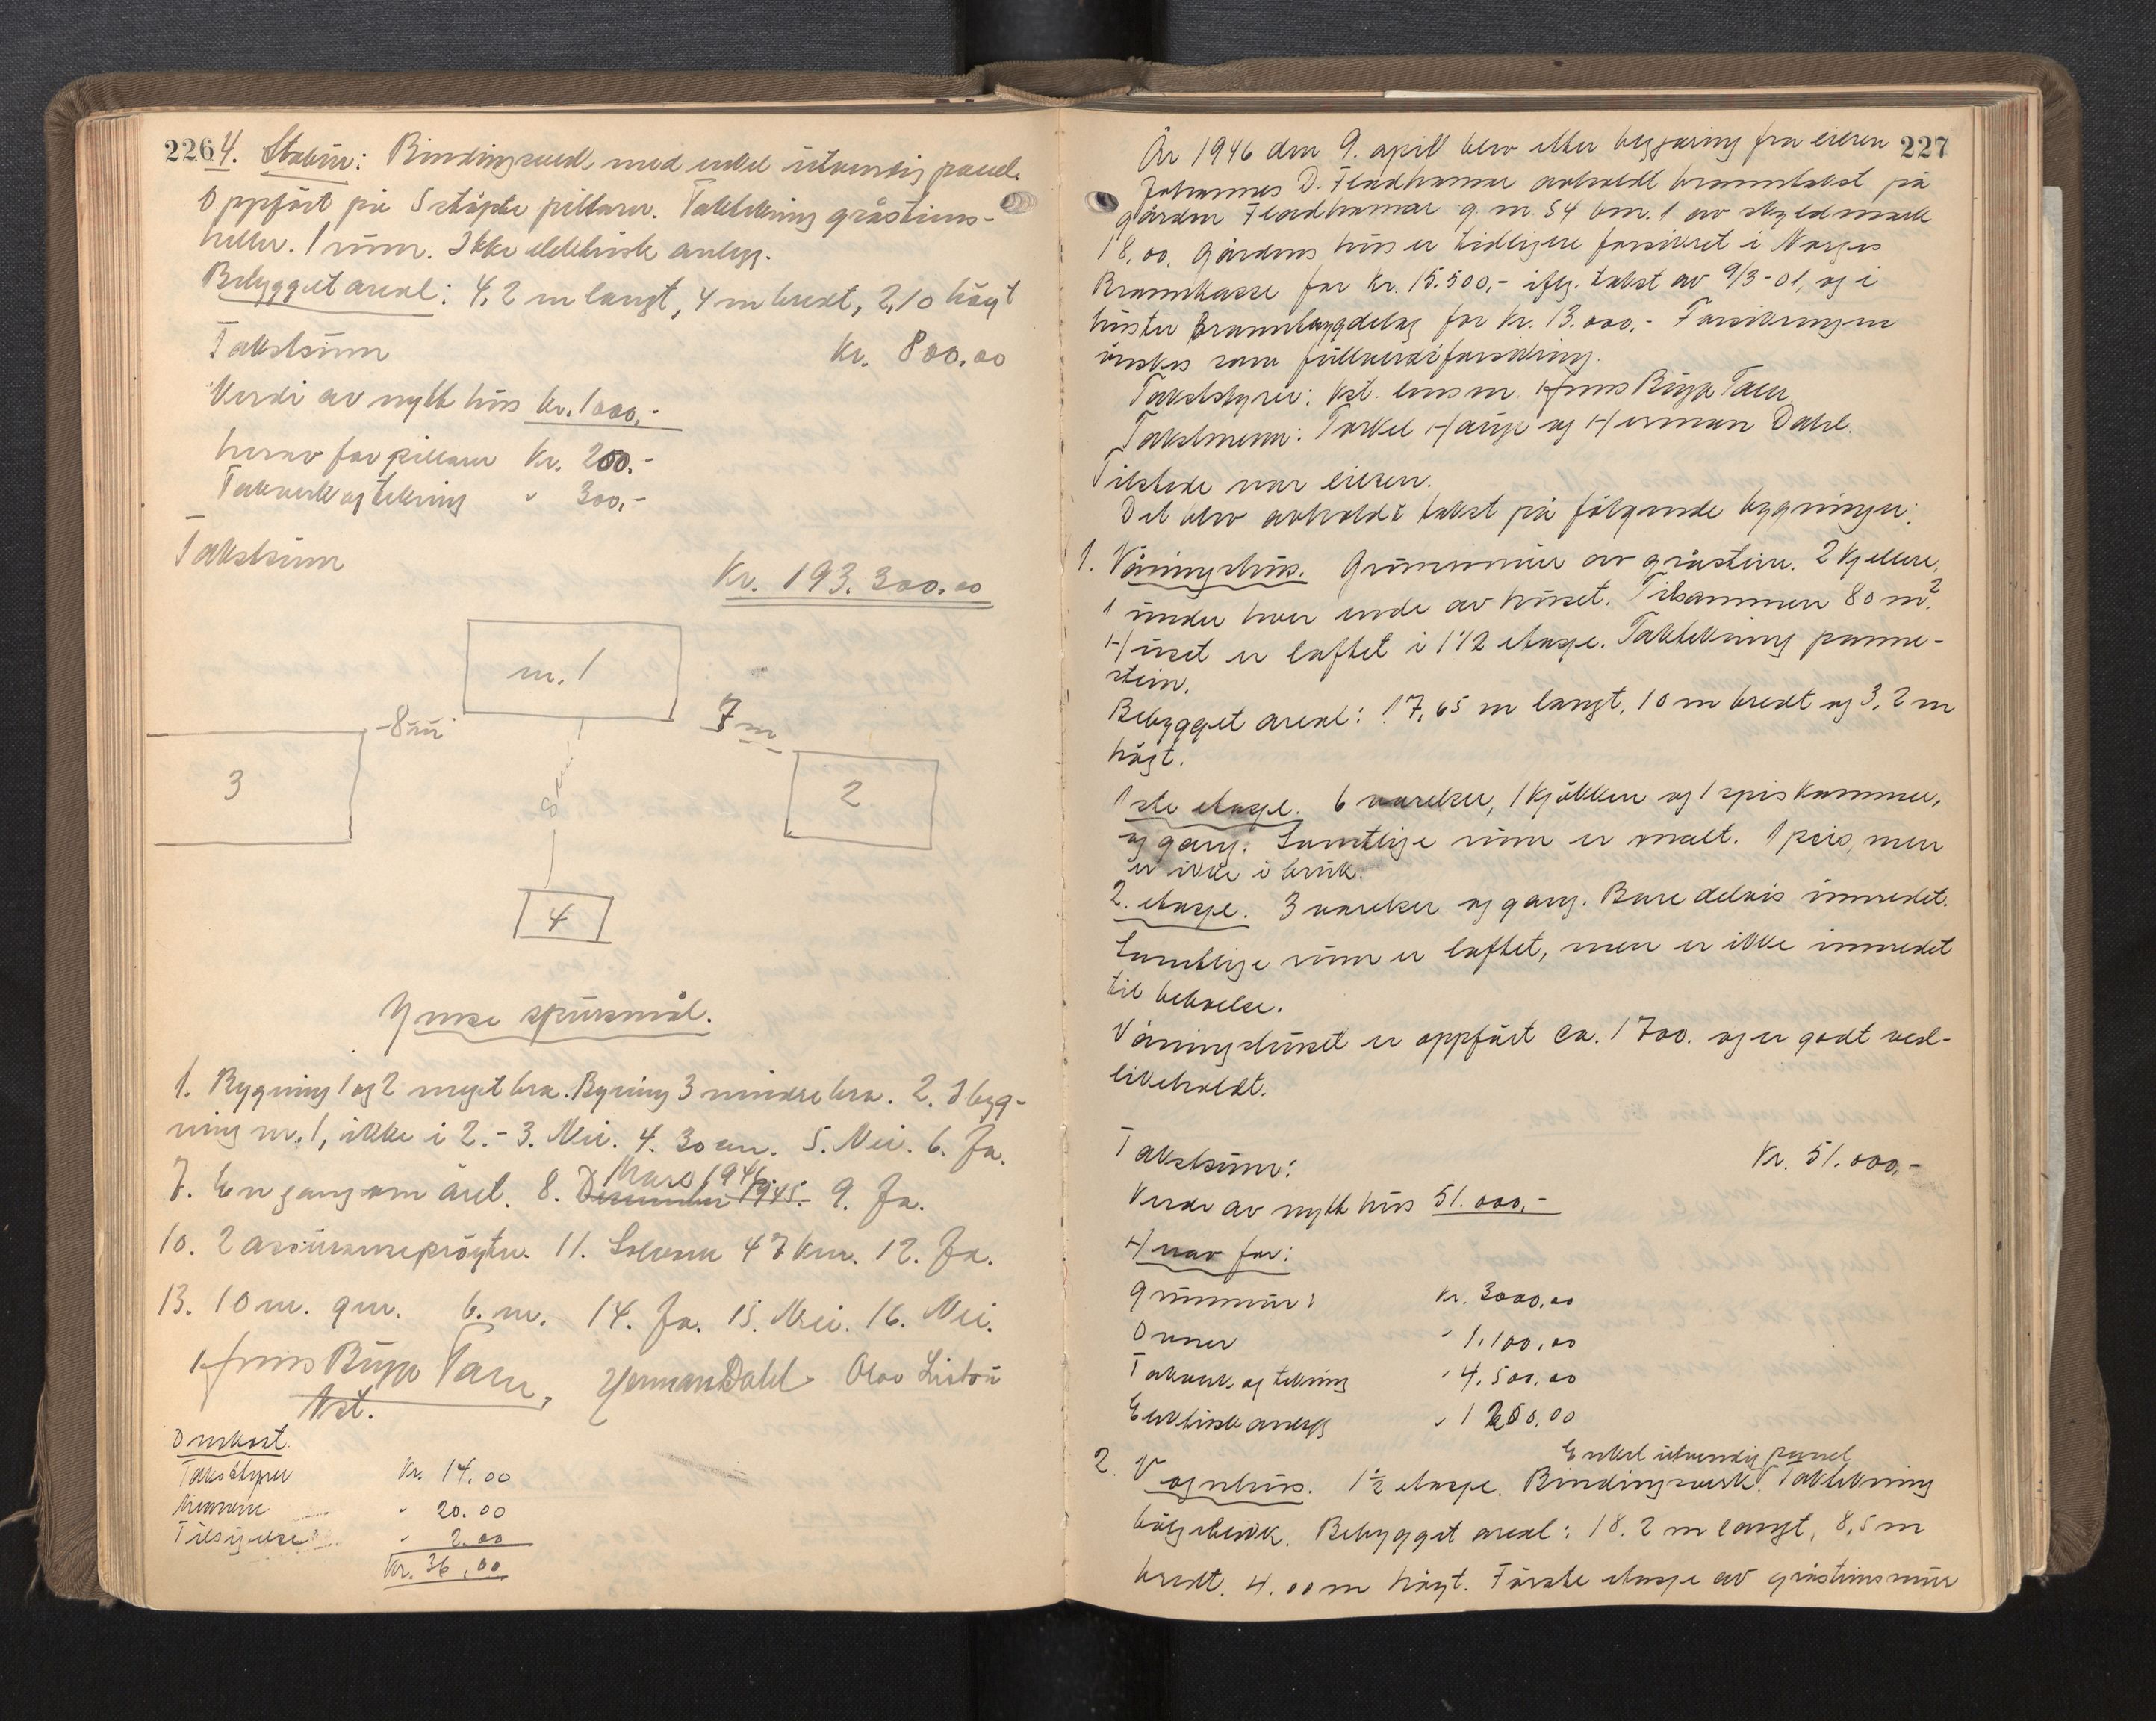 226
4. Stabur: Bindingsverk, med enkel utvendig panel.
Oppført på 5 støpte pillarer. Taktekning gråsteins-
heller. 1 rum. Ikke elektrisk anlegg.
Bebygget areal: 4,2 m langt, 4 m bredt, 2,10 høgt
Takstsum Kr. 800.00
Verdi av nytt hus kr. 1000,-
herav for pillarer Kr. 200.-
Takverk og tekning " 300,-
Takstsum
Kr. 193.300.00
nr. 1
8 m
7 m
3
2
8 m
4
Ymse spursmål.
1. Bygning 1 og 2 meget bra. Bygning 3 mindre bra. 2. I byg-
ning nr. 1, ikke i 2. - 3. Nei. 4. 30 cm. 5. Nei. 6. Ja.
Mars 1946.
7. En gang om året. 8. Desember 1945. 9. Ja.
10. 2 assuransesprøyter. 11. 47 km. 12. Ja.
13. 10 m. gm. 6. m. 14. Ja. 15. Nei. 16. Nei.
Hans Bugge Herman Dahl Olav
Kst.
Omkost.
Takststyrer Kr. 14.00
Mennene " 20.00
Tilsigelse: " 2.00
Kr. 36,00
227
År 1946 den 9. april blev etter begjæring fra eieren
Johannes D. Fladhamar avholdt branntakst på
gården Fladhamar g. nr. 54 bnr. 1 av skyldmark
18,00. Gårdens hus er tidligere forsikret i Norges
Brannkasse for Kr. 15.500,- ifly. takst av 9/3-01, og i
Luster Brannbygdelag for Kr. 13.000.- Forsikringen
ønskes som fullverdiforsikring.
Takststyrer: kst. lensm. Hans Bugge
Takstmenn: Torkel Hauge og Herman Dahl.
Tilstede var eieren.
Det blev avholdt takst på følgende bygninger:
1. Våningshus. Grunnmur av gråstein. 2 kjellere,
1 under hver ende av huset. Tilsammen 80 m2.
Huset er laftet i 1 1/2 etasje. Taktekning panne-
stein.
Bebygget areal: 17,65 m langt, 10 m bredt og 3,2 m
høgt.
1ste etasje. 6 værelser, 1 kjøkken og 1 spiskammer,
og gang. Samtlige rum er malt. 1 peis, men
er ikke i bruk.
2. etasje. 3 værelser og gang. Bare delvis innredet.
Samtlige rum er laftet, men er ikke innredet
til beboelse.
Våningshuset er oppført ca. 1700. og er godt ved-
likeholdt.
Takstsum: Kr. 51.000,-
Verdi av nytt hus 51.000,-
Herav for:
grunnmur: Kr. 3000.00
Ovner " 1.100,00
Takverk og tekning " 4.500,00
Elektrisk anlegg " 1200,00
Enkel utvendig panel
2. Vognhus. 1 1/2 etasje. Bindingsverk. Taktekning
bølgeblikk. Bebygget areal: 18.2 m langt, 8,5 m
bredt. 4.00 m høgt. Første etasje av gråsteinsmur